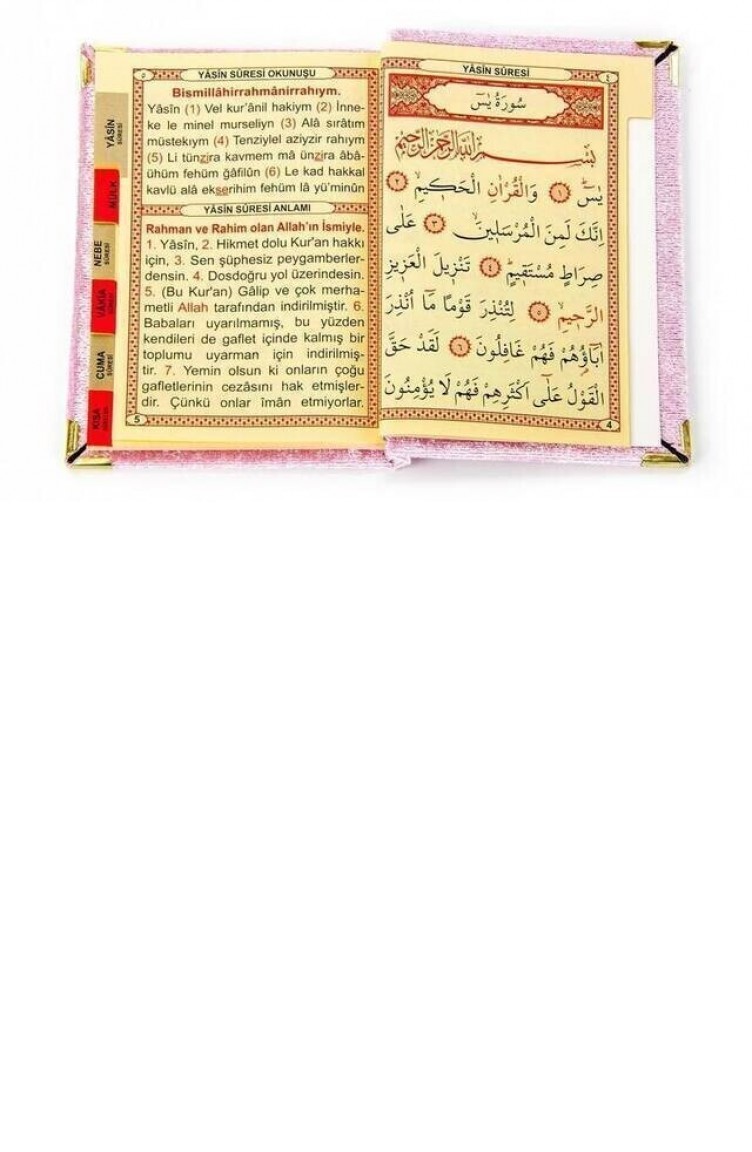 ٥
YÂSÎN SÛRESİ OKUNUŞU
Bismillâhirrahmânirrahıym.
Yâsîn (1) Vel kur'ânil hakiym (2) İnne-
ke le minel murseliyn (3) Alâ sırâtım
müstekıym (4) Tenziylel aziyzir rahıym
(5) Li tünzira kavmem mâ ünzira âbâ-
ühüm fehüm ğâfilûn (6) Le kad hakkal
kavlü alâ ekserihim fehüm lâ yü'minûn
YÂSÎN SÛRESİ ANLAMI
Rahman ve Rahim olan Allah'ın İsmiyle.
1. Yâsîn, 2. Hikmet dolu Kur'an hakkı
için, 3. Sen şüphesiz peygamberler-
densin. 4. Dosdoğru yol üzerindesin.
5. (Bu Kur'an) Gâlip ve çok merha-
metli Allah tarafından indirilmiştir. 6.
Babaları uyarılmamış, bu yüzden
kendileri de gaflet içinde kalmış bir
toplumu uyarman için indirilmiş-
tir. 7. Yemin olsun ki onların çoğu
gafletlerinin cezâsını hak etmişler-
dir. Çünkü onlar îmân etmiyorlar.
5
YÂSÎN
SÛRESİ
MÜLK
NEBE
SÛRESİ
VÂKIA
CUMA
SÛRESİ
KISA
YÂSÎN SÛRESİ
٤
سُورَةُ يٰسٓ
بِسْمِ اللّٰهِ الرَّحْمٰنِ الرَّحِيمِ
يٰسٓ ﴿١﴾ وَالْقُرْاٰنِ الْحَكِيمِۙ ﴿٢﴾
اِنَّكَ لَمِنَ الْمُرْسَلِينَۙ ﴿٣﴾ عَلٰى
صِرَاطٍ مُسْتَقِيمٍۜ ﴿٤﴾ تَنْزِيلَ الْعَزِيزِ
الرَّحِيمِۙ ﴿٥﴾ لِتُنْذِرَ قَوْمًا مَٓا اُنْذِرَ
اٰبَٓاؤُ۬هُمْ فَهُمْ غَافِلُونَ ﴿٦﴾ لَقَدْ حَقَّ
الْقَوْلُ عَلٰٓى اَكْثَرِهِمْ فَهُمْ لَا يُؤْمِنُونَ
4